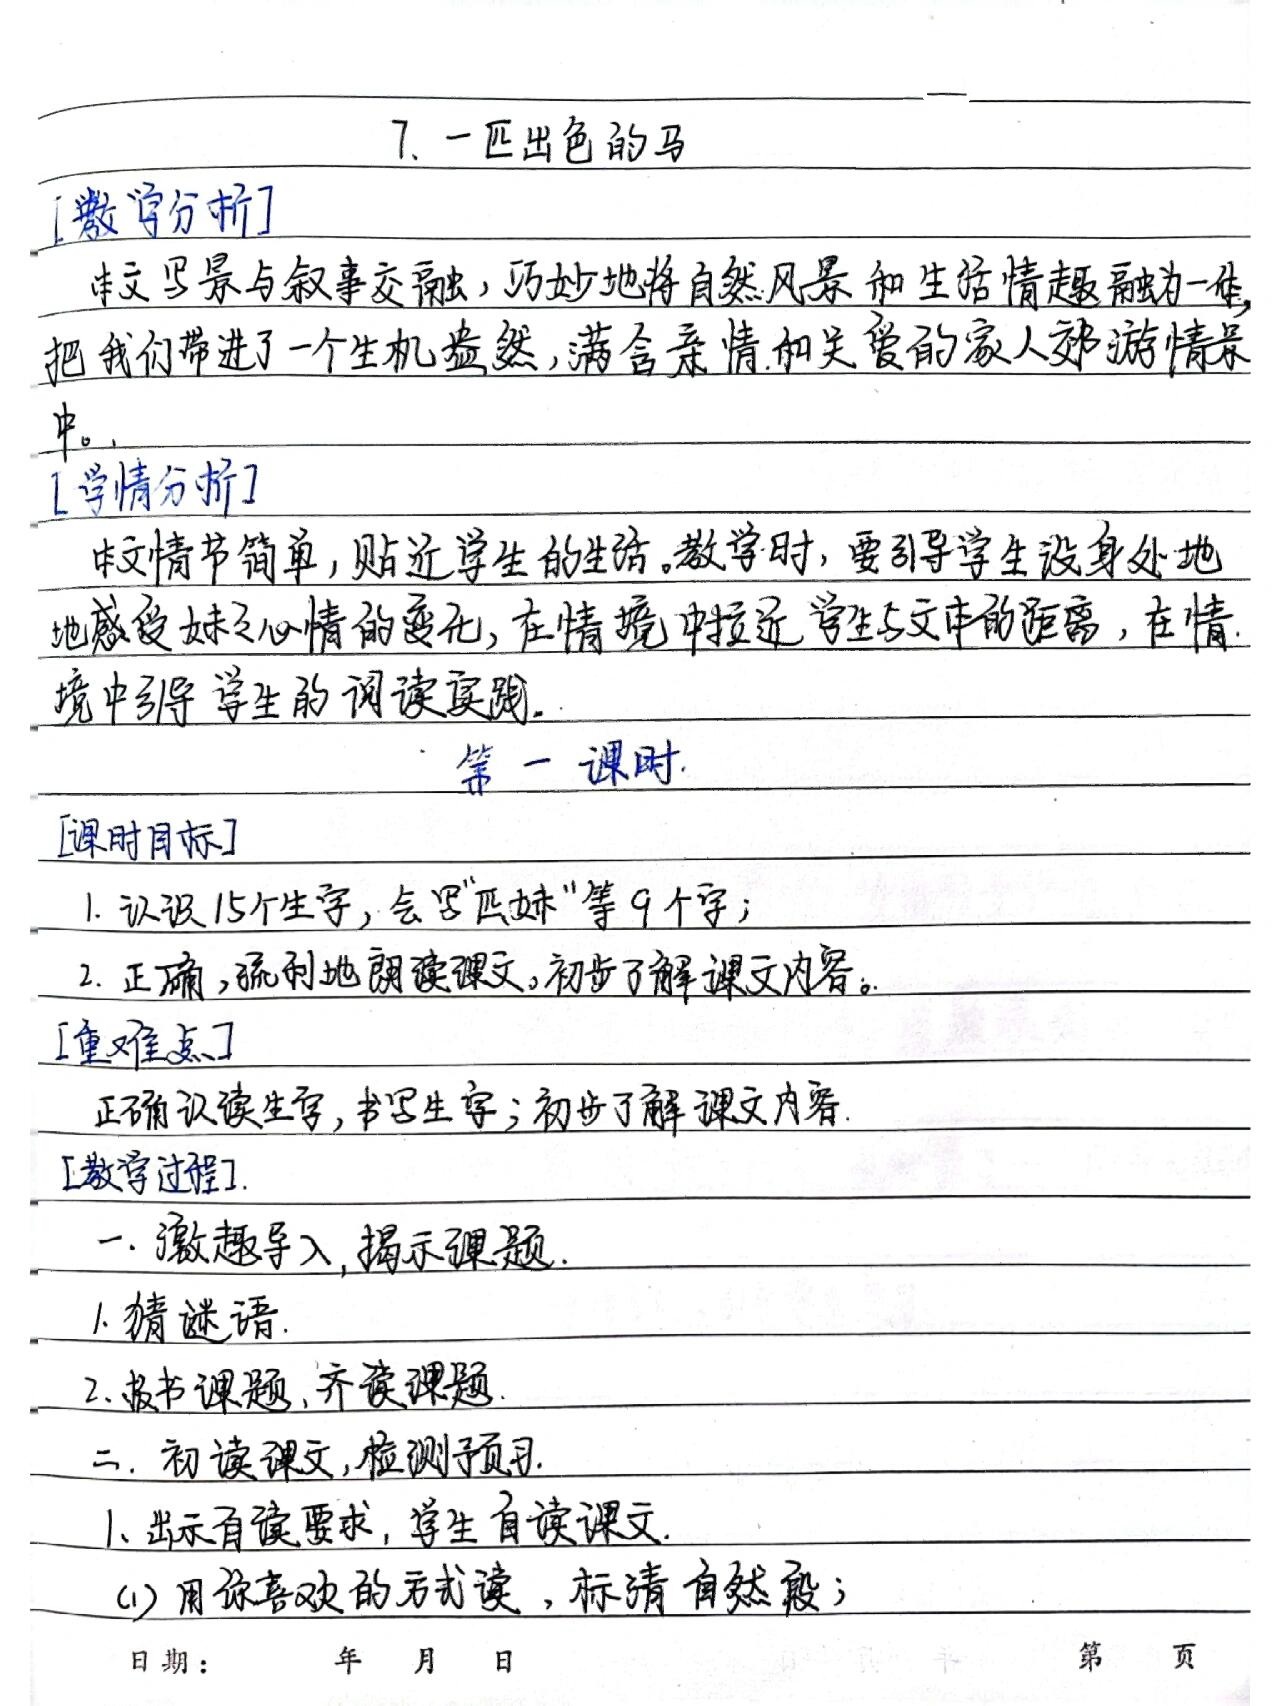 7、一匹出色的马
[教学分析]
本文写景与叙事交融，巧妙地将自然风景和生活情趣融为一体，
把我们带进了一个生机盎然，满含亲情和关爱的家人郊游情景
中。
[学情分析]
本文情节简单，贴近学生的生活。教学时，要引导学生设身处地
地感受妹妹心情的变化，在情境中拉近学生与文本的距离，在情
境中引导学生的阅读实践。
第一课时.
[课时目标]
1. 认识15个生字，会写“匹妹”等9个字；
2. 正确，流利地朗读课文，初步了解课文内容。
[重难点]
正确认读生字，书写生字；初步了解课文内容.
[教学过程].
一. 激趣导入，揭示课题.
1. 猜谜语.
2. 板书课题，齐读课题.
二. 初读课文，检测预习.
1、出示自读要求，学生自读课文.
(1) 用你喜欢的方式读，标清自然段；
日期： 年 月 日 第 页